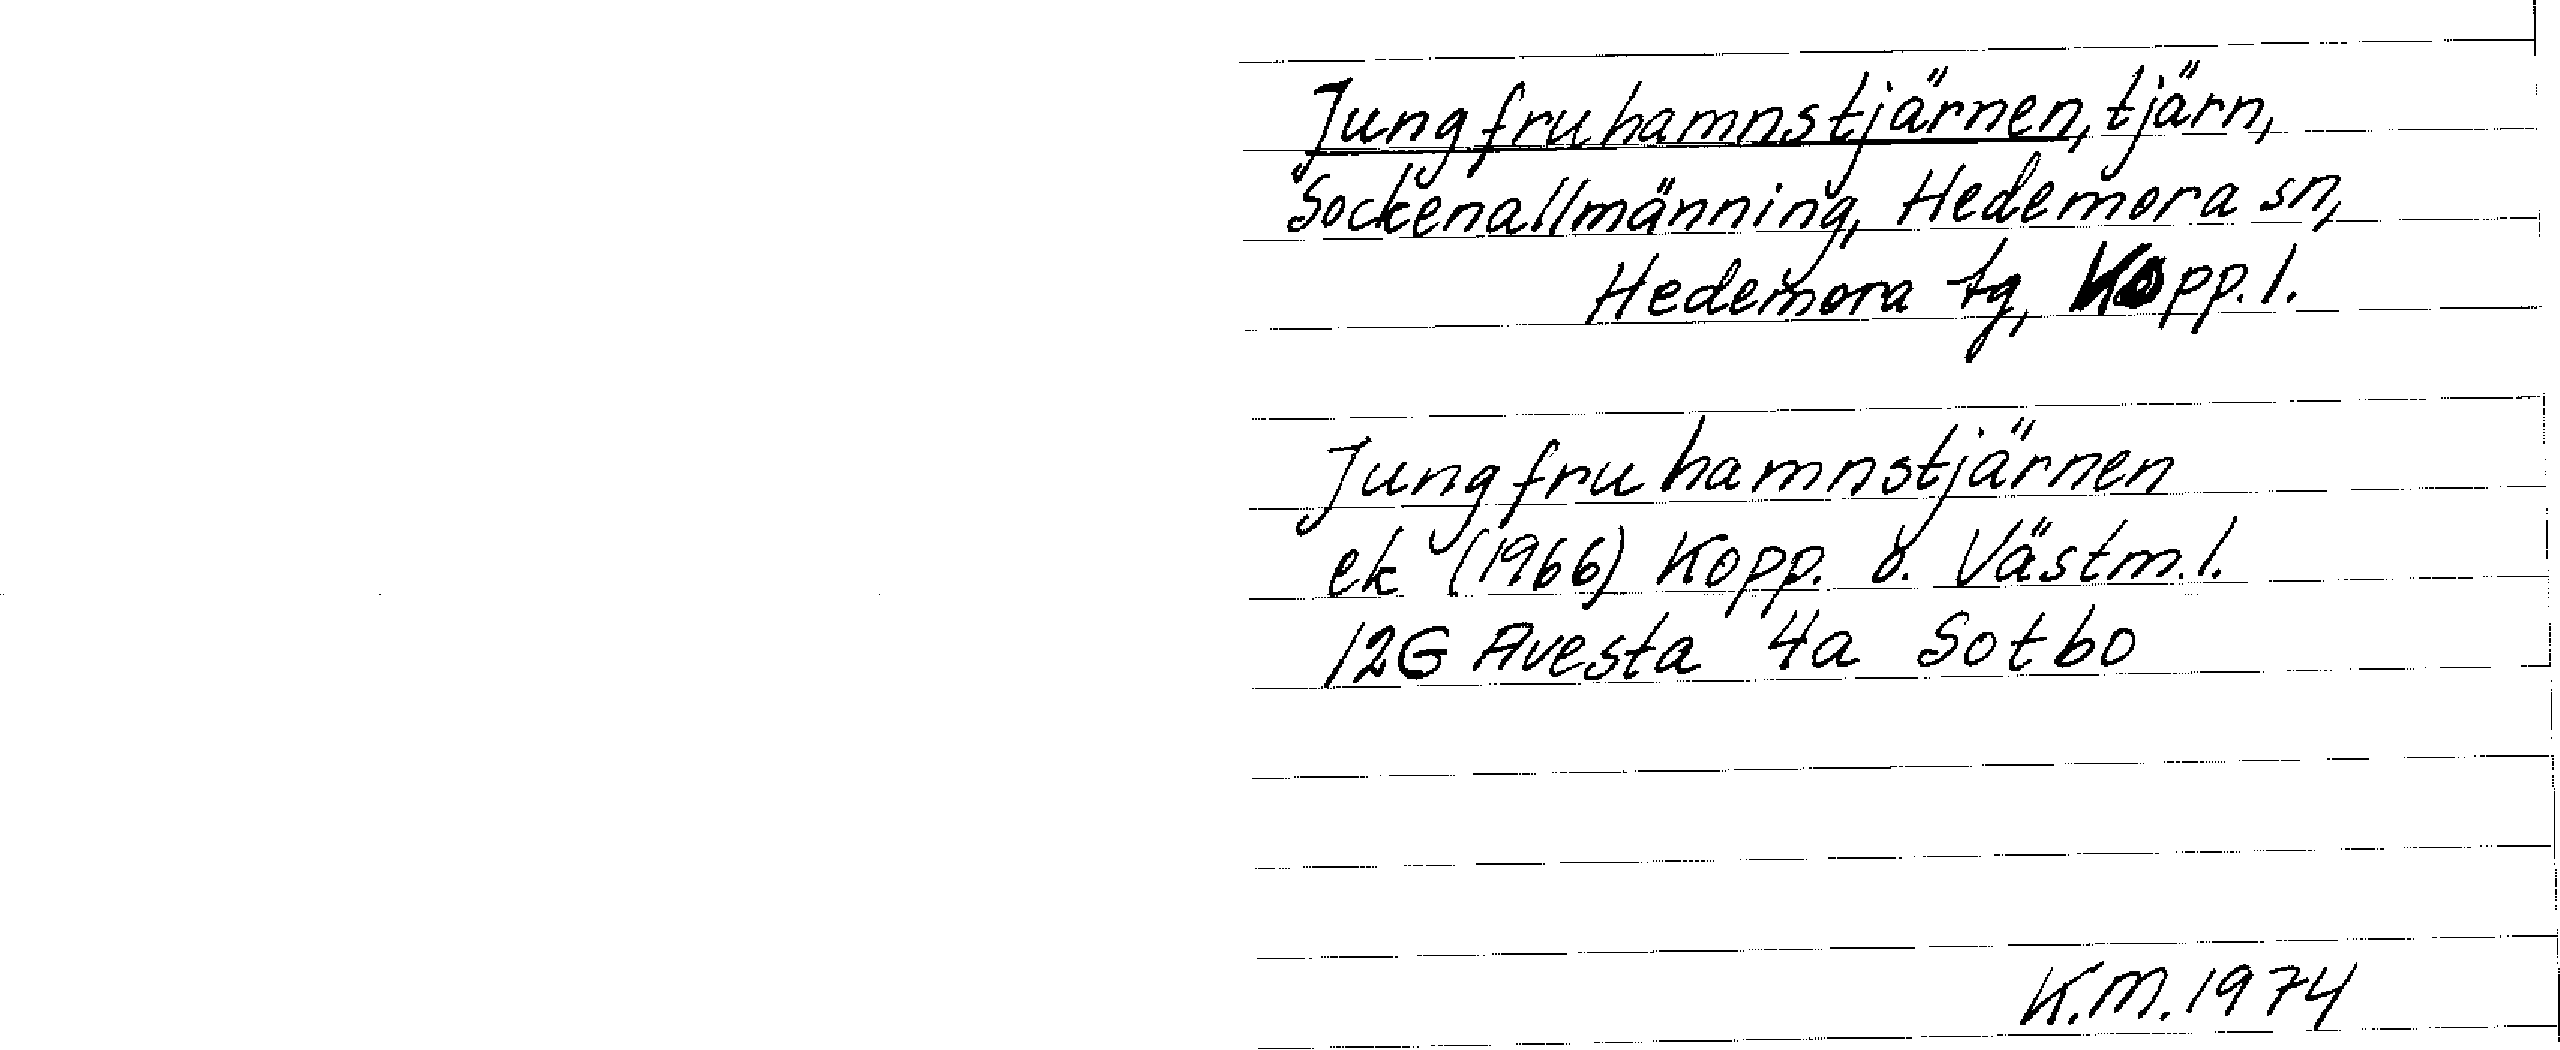 Jungfruhamnstjärnen, tjärn,
Sockenallmänning, Hedemora sn,
Hedemora tg, Kopp. l.
Jungfruhamnstjärnen
ek (1966) Kopp. o. Västm. l.
12G Avesta 4a Sotbo
K.M. 1974